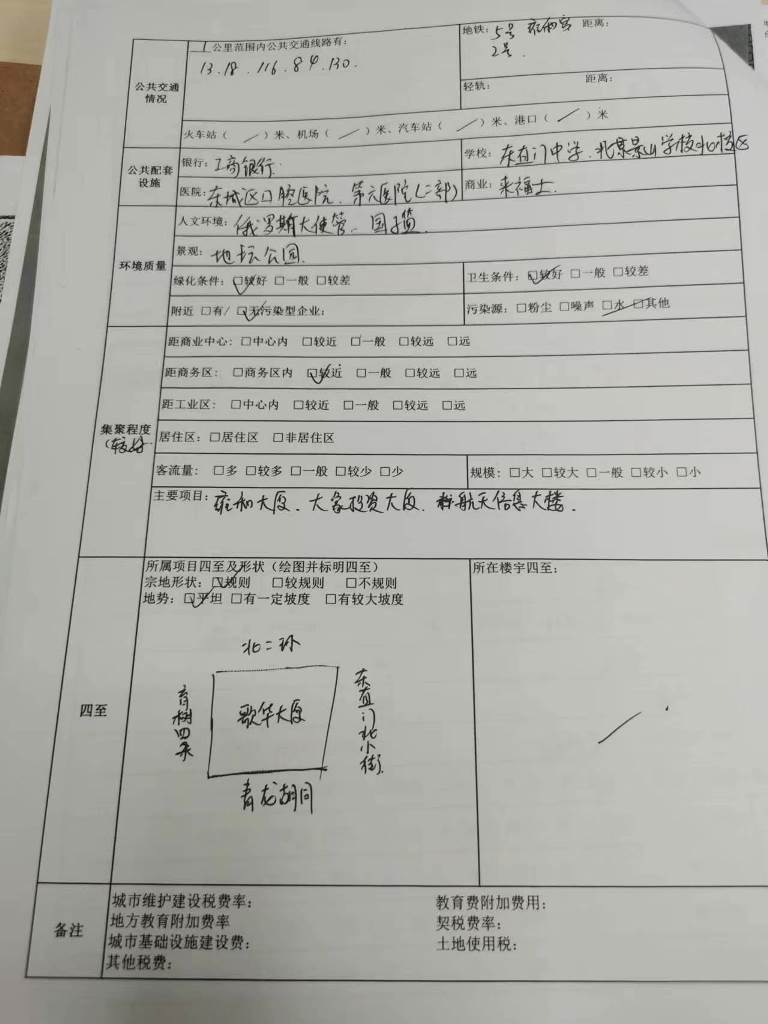 公共交通情况
1公里范围内公共交通线路有:
13.18.116.84.130.
地铁: 5号 雍和宫 距离:
2号.
轻轨: 距离:
火车站( / )米、机场( / )米、汽车站( / )米、港口( / )米
公共配套设施
银行: 工商银行.
学校: 东直门中学.北京景山学校北校区
医院: 东城区口腔医院、第六医院(二部)
商业: 来福士.
环境质量
人文环境: 俄罗斯大使馆、国子监
景观: 地坛公园.
绿化条件: ☑较好 □一般 □较差
卫生条件: ☑较好 □一般 □较差
附近 □有/ ☑无污染型企业:
污染源: □粉尘 □噪声 □水 □其他
集聚程度
(较好
距商业中心: □中心内 □较近 □一般 □较远 □远
距商务区: □商务区内 ☑较近 □一般 □较远 □远
距工业区: □中心内 □较近 □一般 □较远 □远
居住区: □居住区 □非居住区
客流量: □多 □较多 □一般 □较少 □少
规模: □大 □较大 □一般 □较小 □小
主要项目: 雍和大厦、大象投资大厦、航天信息大楼.
四至
所属项目四至及形状(绘图并标明四至)
宗地形状: ☑规则 □较规则 □不规则
地势: ☑平坦 □有一定坡度 □有较大坡度
所在楼宇四至:
北二环
歌华大厦
东直门北小街
青龙胡同
备注
城市维护建设税费率:
教育费附加费用:
地方教育附加费率
契税费率:
城市基础设施建设费:
土地使用税:
其他税费: